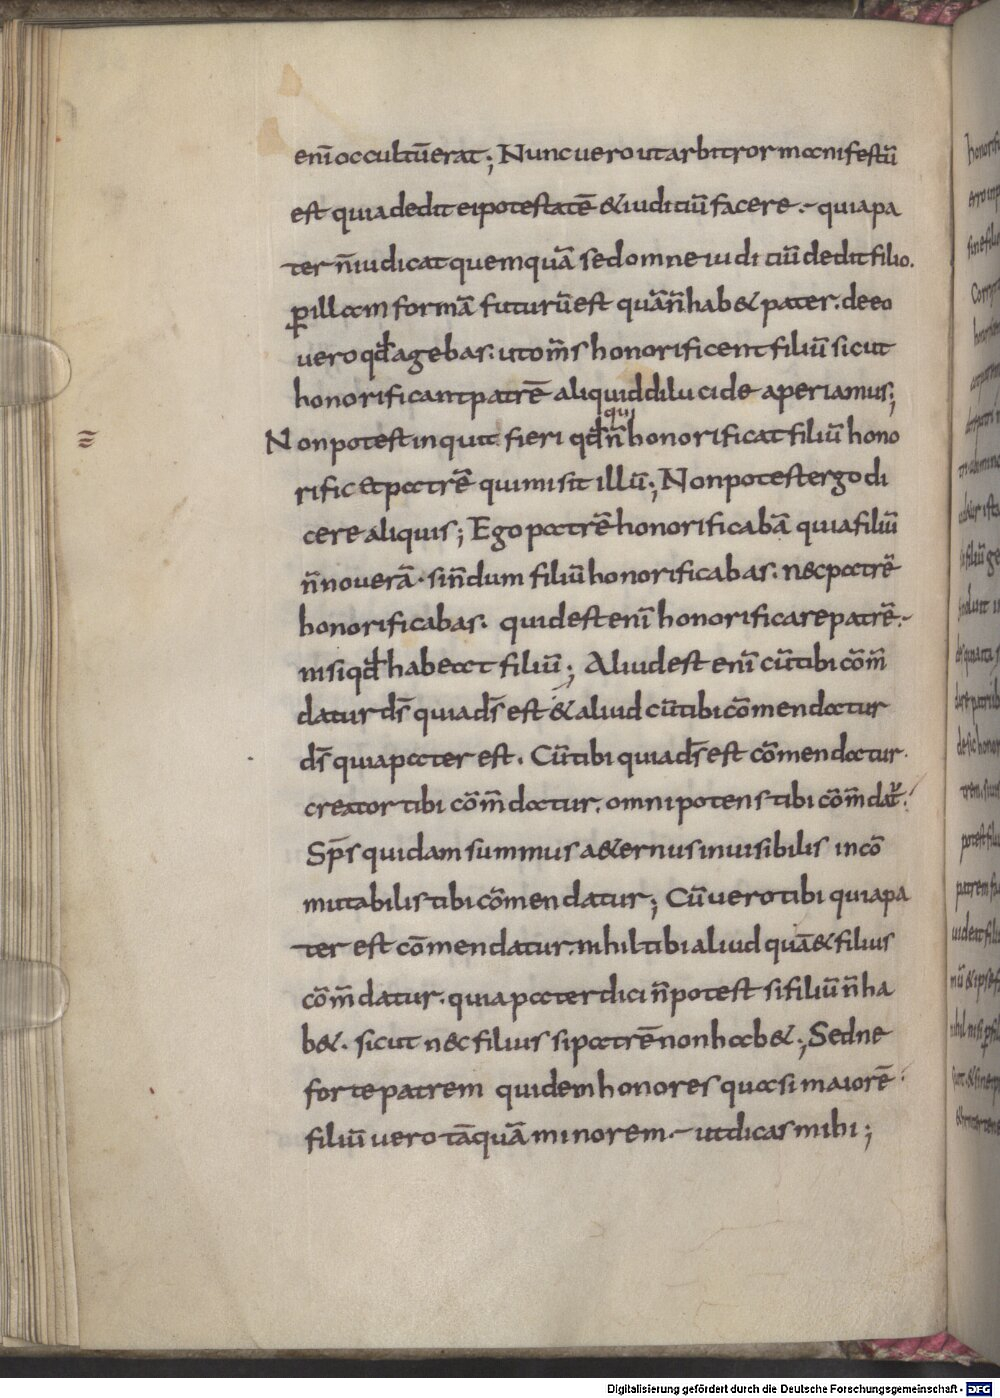 enī occultū erat; Nunc uero ut arbitror manifestū
est quia dedit ei potestatē & iuditiū facere. quia pa
ter n̄ iudicat quemquā sed omne iuditiū dedit filio.
ꝑ illam formā futurū est quā n̄ hab& pater. de eo
uero qđ agebas. ut om̄s honorificent filiū sicut
honorificant patrē aliquid dilucide aperiamus;
qui
Non potest inquit fieri qđ n̄ honorificat filiū hono
rificet patrē qui misit illū; Non potest ergo di
cere aliquis; Ego patrē honorificabā quia filiū
n̄ noverā. si n̄dum filiū honorificabas. nec patrē
honorificabas. quid est enī honorificare patrē.
nisi qđ habeat filiū; Aliud est enī cū tibi cōm̄
datur d̄s quia d̄s est & aliud cū tibi cōmendatur
d̄s quia pater est. Cū tibi quia d̄s est cōmendatur.
creator tibi cōm̄datur. omnipotens tibi cōm̄dat̄.
Sp̄s quidam summus a&ernus inuisibilis incō
mutabilis tibi cōmendatur; Cū uero tibi quia pa
ter est cōmendatur. nihil tibi aliud quā & filius
cōm̄datur. quia pater dici n̄ potest si filiū n̄ ha
b&. sicut nec filius si patrē non hab&; Sed ne
forte patrem quidem honores quasi maiorē
filiū uero tāquā minorem. ut dicas mihi;
Digitalisierung gefördert durch die Deutsche Forschungsgemeinschaft - DFG